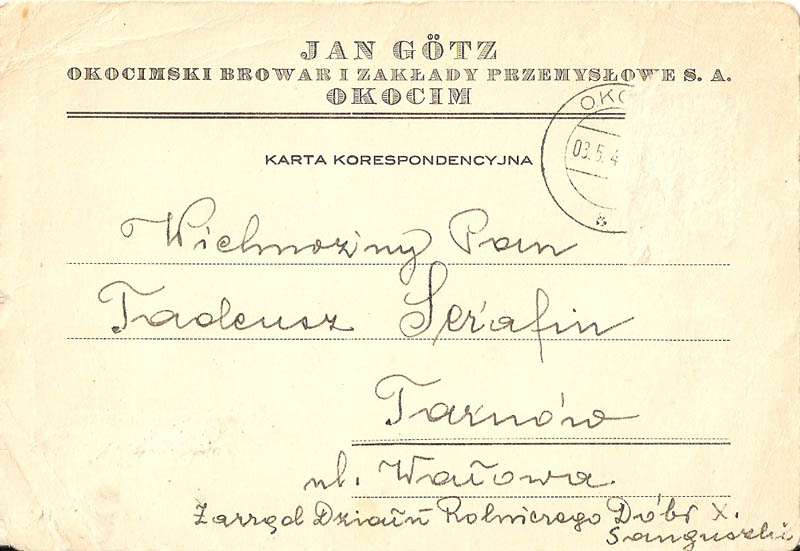 JAN GÖTZ
OKOCIMSKI BROWAR I ZAKŁADY PRZEMYSŁOWE S. A.
OKOCIM
OKO
03.5.4
KARTA KORESPONDENCYJNA
Pan
Tadeusz Serafin
Tarnów
ul. Wałowa.
Zarząd Działu Rolniczego Dóbr X.
Sanguszki